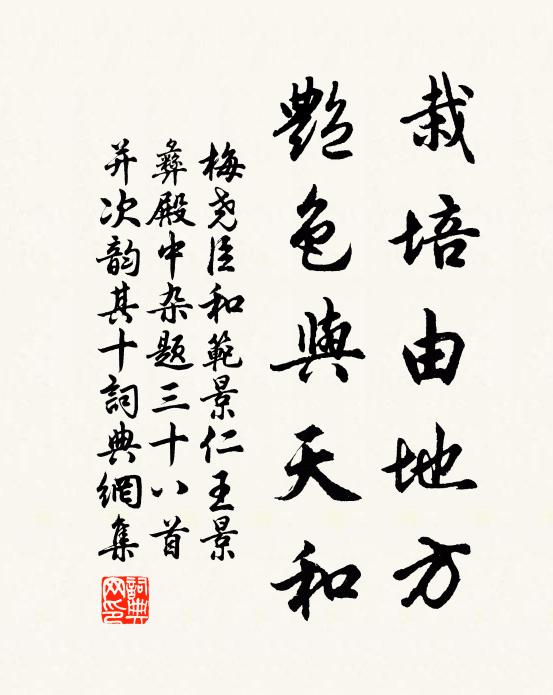 栽培由地方
艷色與天和
梅尧臣和範景仁王景
彝殿中杂题三十八首
并次韵其十詞典網集
詞典網印